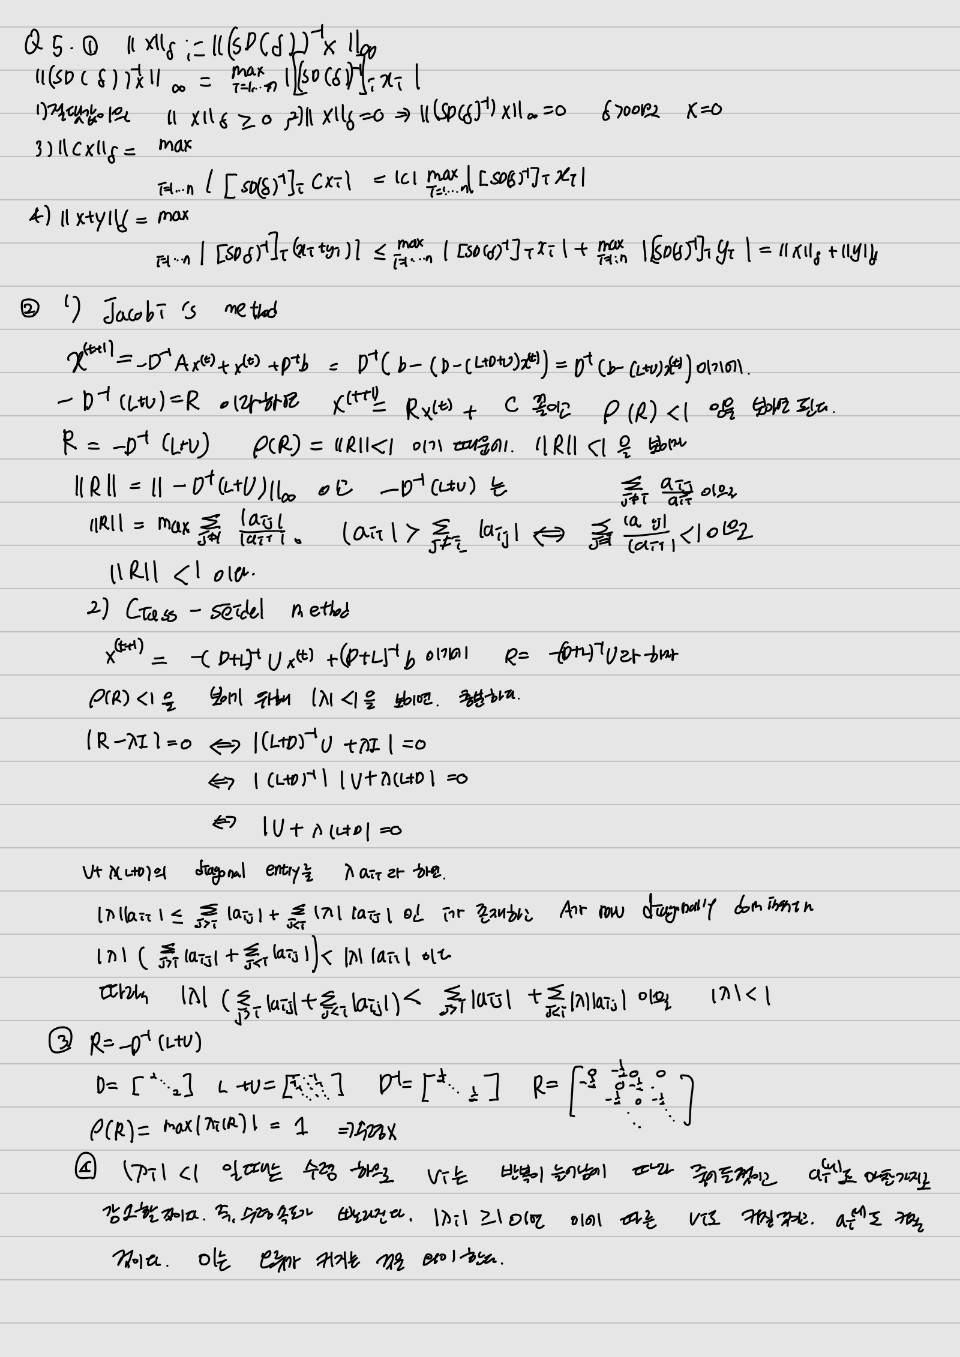 Q 5. ① ‖x‖δ := ‖(SD(δ))⁻¹x‖∞
‖(SD(δ))⁻¹x‖∞ = max i=1,…n |[(SD(δ))⁻¹]i xi|
1) 절댓값이므로 ‖x‖δ ≥ 0 2) ‖x‖δ = 0 ⇒ ‖(SD(δ)⁻¹)x‖∞ = 0 δ>0이므로 x=0
3) ‖Cx‖δ = max
i=1…n |[SD(δ)⁻¹]i cxi| = |c| max i=1,…n |[SD(δ)⁻¹]i xi|
4) ‖x+y‖δ = max
i=1…n |[SD(δ)⁻¹]i (xi+yi)| ≤ max i=1,…n |[SD(δ)⁻¹]i xi| + max i=1…n |[SD(δ)⁻¹]i yi| = ‖x‖δ + ‖y‖δ
② 1) Jacobi's method
x^(t+1) = -D⁻¹Ax^(t) + x^(t) + D⁻¹b = D⁻¹(b-(D-(L+D+U)x^(t)) = D⁻¹(b-(L+U)x^(t)) 이기에.
-D⁻¹(L+U)=R 이라하면 x^(t+1) = Rx^(t) + C 꼴이고 ρ(R)<1 임을 보이면 된다.
R = -D⁻¹(L+U) ρ(R) = ‖R‖<1 이기 때문에. ‖R‖<1 을 보이자
‖R‖ = ‖-D⁻¹(L+U)‖∞ 이고 -D⁻¹(L+U) 는 Σj≠i aij/aii 이므로
‖R‖ = max Σj≠i |aij|/|aii|. |aii| > Σj≠i |aij| ⇔ Σj≠i |aij|/|aii| <1 이므로
‖R‖ <1 이다.
2) Gauss - Seidel method
x^(t+1) = -(D+L)⁻¹Ux^(t) + (D+L)⁻¹b 이기에 R= -(D+L)⁻¹U라 하자
ρ(R)<1을 보이기 위해 |λ|<1을 보이면. 충분하다.
|R-λI|=0 ⇔ |(L+D)⁻¹U + λI| = 0
⇔ |(L+D)⁻¹| |U+λ(L+D)| = 0
⇔ |U + λ(L+D)| = 0
U+λ(L+D)의 diagonal entry를 λaii라 하면.
|λ||aii| ≤ Σj>i |aij| + Σj<i |λ||aij| 인 i가 존재하고 A가 row diagonally dominant
|λ| (Σj>i |aij| + Σj<i |aij|) < |λ||aii| 이고
따라서 |λ| (Σj>i |aij| + Σj<i |aij|) < Σj>i |aij| + Σj<i |λ||aij| 이므로 |λ|<1
③ R=-D⁻¹(L+U)
D= [2 ⋱ 2] L+U= [-1 ⋱ -1] D⁻¹= [½ ⋱ ½] R= [0 -½ 0 0 -½ 0 -½ -½ 0 -½ ⋱]
ρ(R)= max|λi(R)| = 1 ⇒수렴X
④ |λi| <1 일때는 수렴 하므로 vi는 반복이 늘어남에 따라 줄어들것이고 ai^(t)도 마찬가지로
감소할 것이다. 즉, 수렴 속도가 빨라진다. |λi| ≥1 이면 이에 따른 vi도 커질것이고. ai^(t)도 커질
것이다. 이는 오류가 커지는 것을 의미한다.